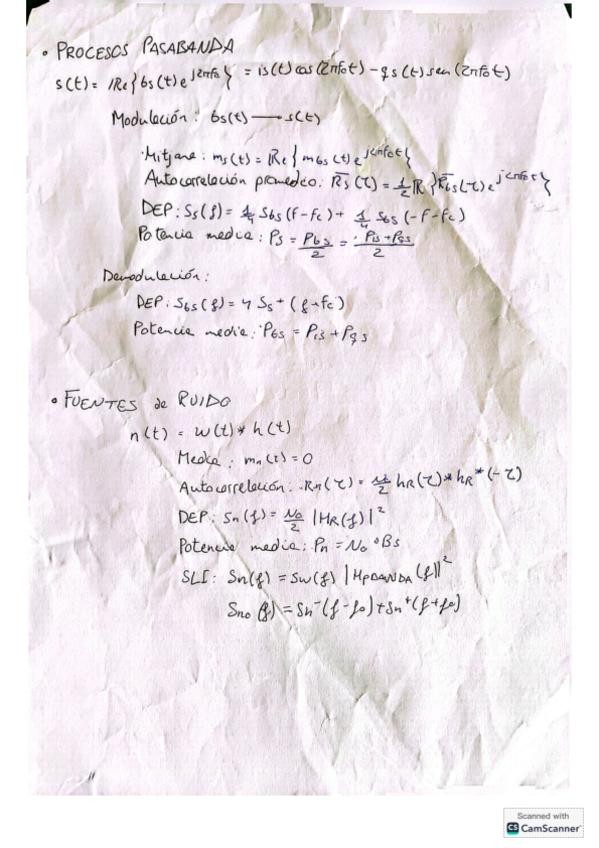 • PROCESOS PASABANDA
s(t) = Re{bs(t) e^j2πf0} = is(t) cos(2πf0t) - qs(t) sen(2πf0t)
Modulación: bs(t) → s(t)
Mitjana: ms(t) = Re{mbs(t) e^j2πf0t}
Autocorrelación promedio: R̄s(τ) = 1/2 R{R̄bs(τ) e^j2πf0t}
DEP: Ss(f) = 1/4 Sbs(f-fc) + 1/4 Sbs(-f-fc)
Potencia media: Ps = Pbs/2 = Pis+Pqs/2
Demodulación:
DEP: Sbs(f) = 4 Ss+(f+fc)
Potencia media: Pbs = Pis + Pqs
• FUENTES de RUIDO
n(t) = w(t) * h(t)
Media: mn(t) = 0
Autocorrelación: Rn(τ) = No/2 hR(τ) * hR*(-τ)
DEP: Sn(f) = No/2 |HR(f)|²
Potencia media: Pn = No · Bs
SLI: Sn(f) = Sw(f) |HPBANDA(f)|²
Sno(f) = Sn⁻(f-f0) + Sn⁺(f+f0)
Scanned with
CS CamScanner